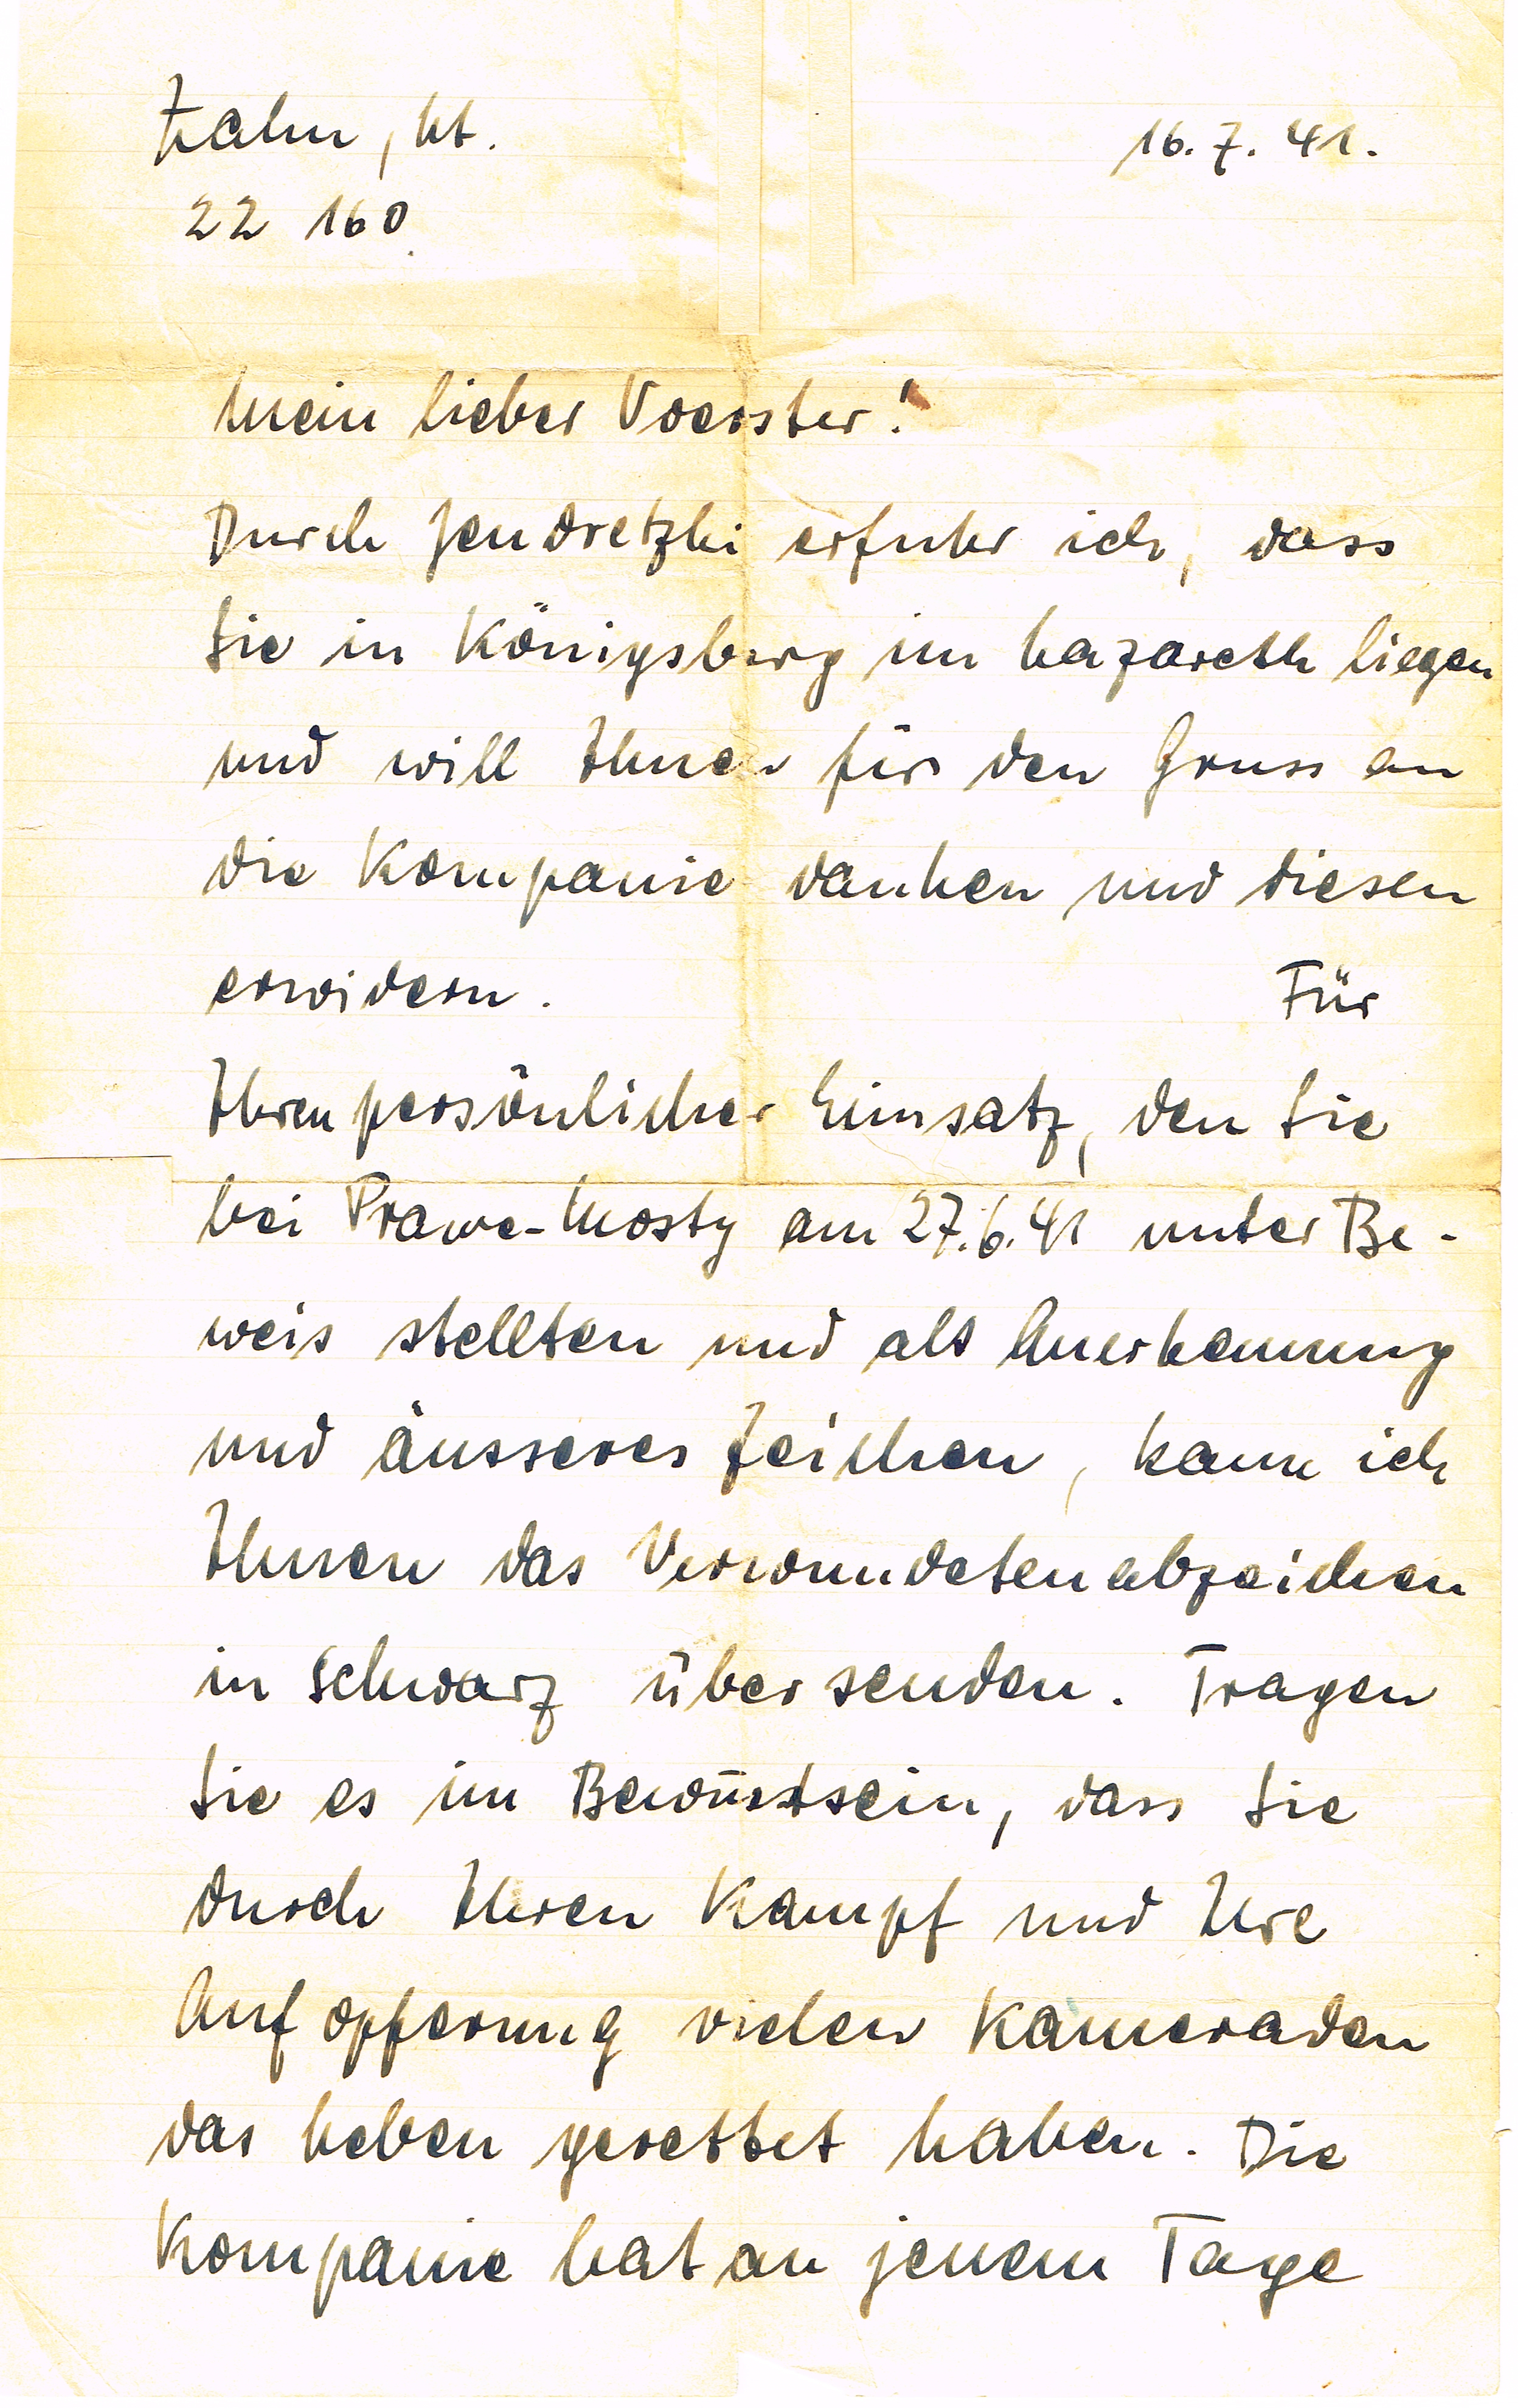 Zahn, Lt.
16. 7. 41.
22 160
Mein lieber Voerster!
Durch Jendretzki erfuhr ich, dass
Sie in Königsberg im Lazareth liegen
und will Ihnen für den Gruss an
die Kompanie danken und diesen
erwidern. Für
Ihren persönlichen Einsatz, den Sie
bei Prawe-Mosty am 27.6.41 unter Be-
weis stellten und als Anerkennung
und äusseres Zeichen, kann ich
Ihnen das Verwundetenabzeichen
in Schwarz übersenden. Tragen
Sie es im Bewüstsein, dass Sie
durch Ihren Kampf und Ihre
Aufopferung vielen Kameraden
das Leben gerettet haben. Die
Kompanie hat an jenem Tage